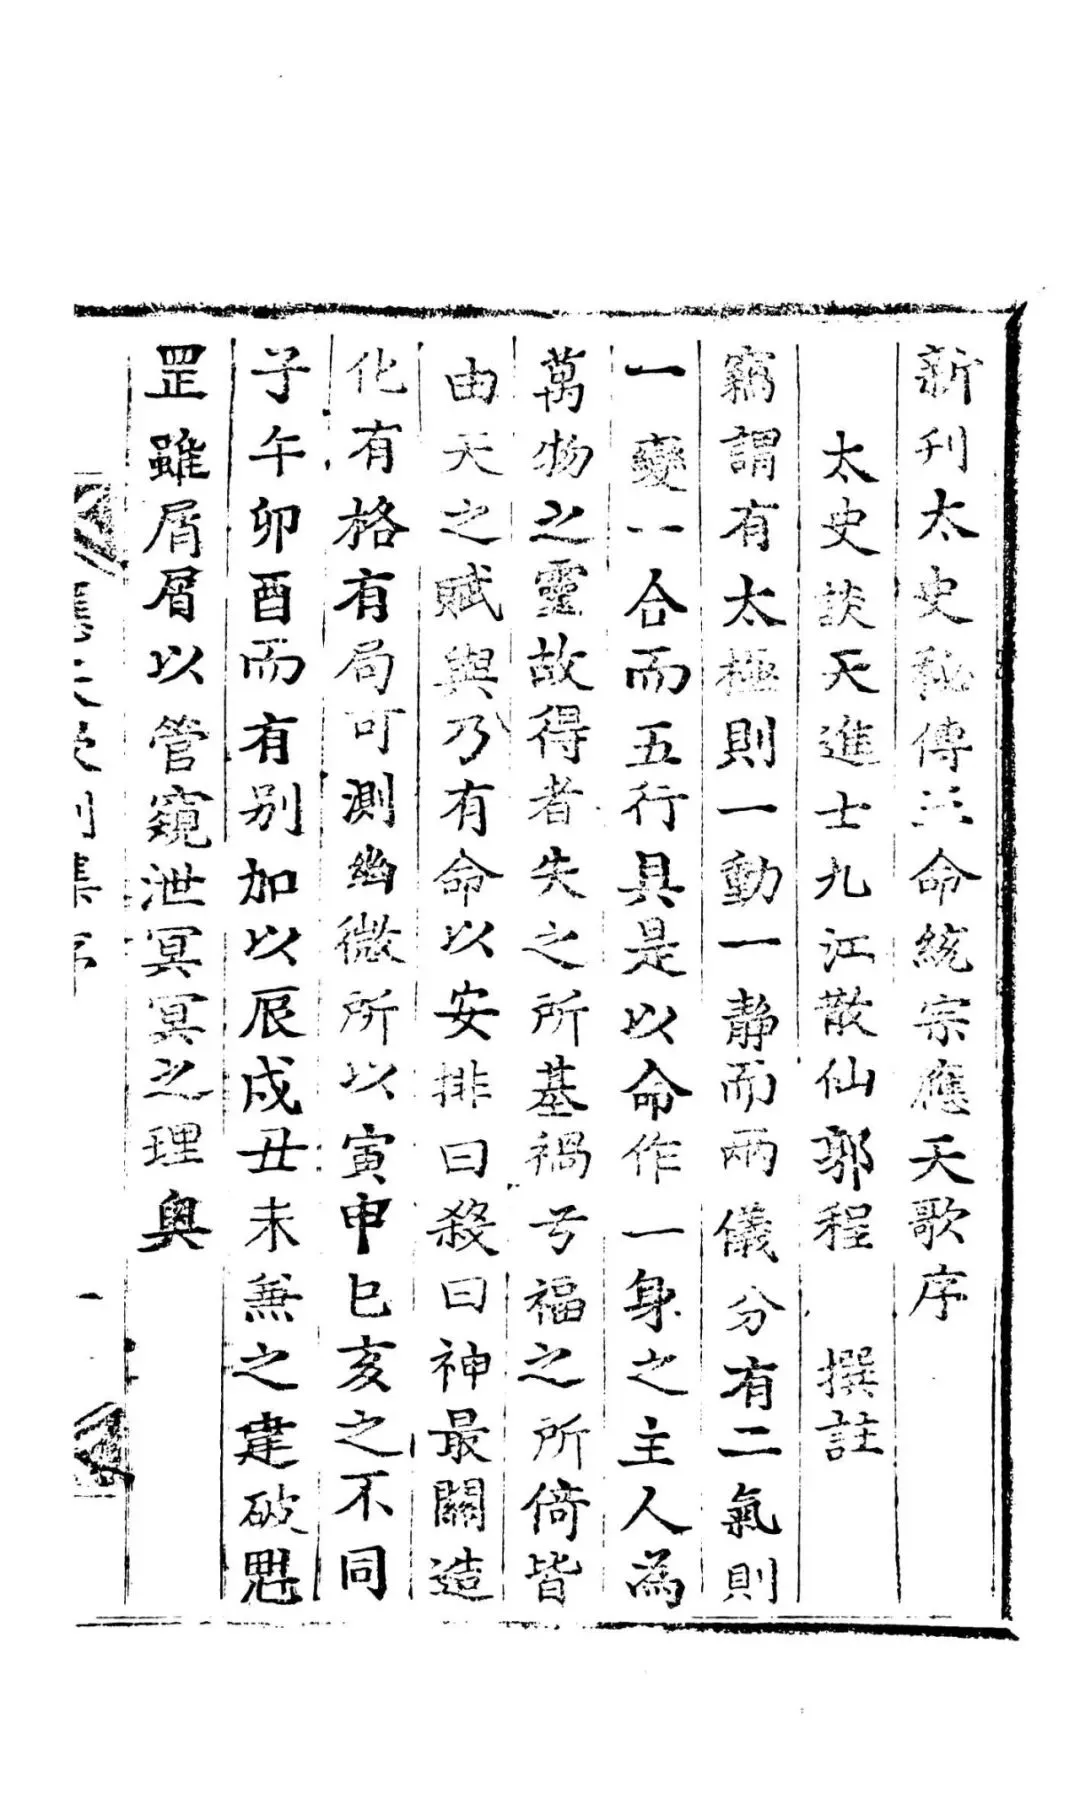 新刊太史秘傳三命統宗應天歌序
太史談天進士九江散仙郭程 撰註
竊謂有太極則一動一靜而兩儀分有二氣則
一變一合而五行具是以命作一身之主人為
萬物之靈故得者失之所基禍兮福之所倚皆
由天之賦與乃有命以安排曰殺曰神最關造
化有格有局可測幽微所以寅申巳亥之不同
子午卯酉而有别加以辰戌丑未兼之建破魁
罡雖屑屑以管窺泄冥冥之理奥
一